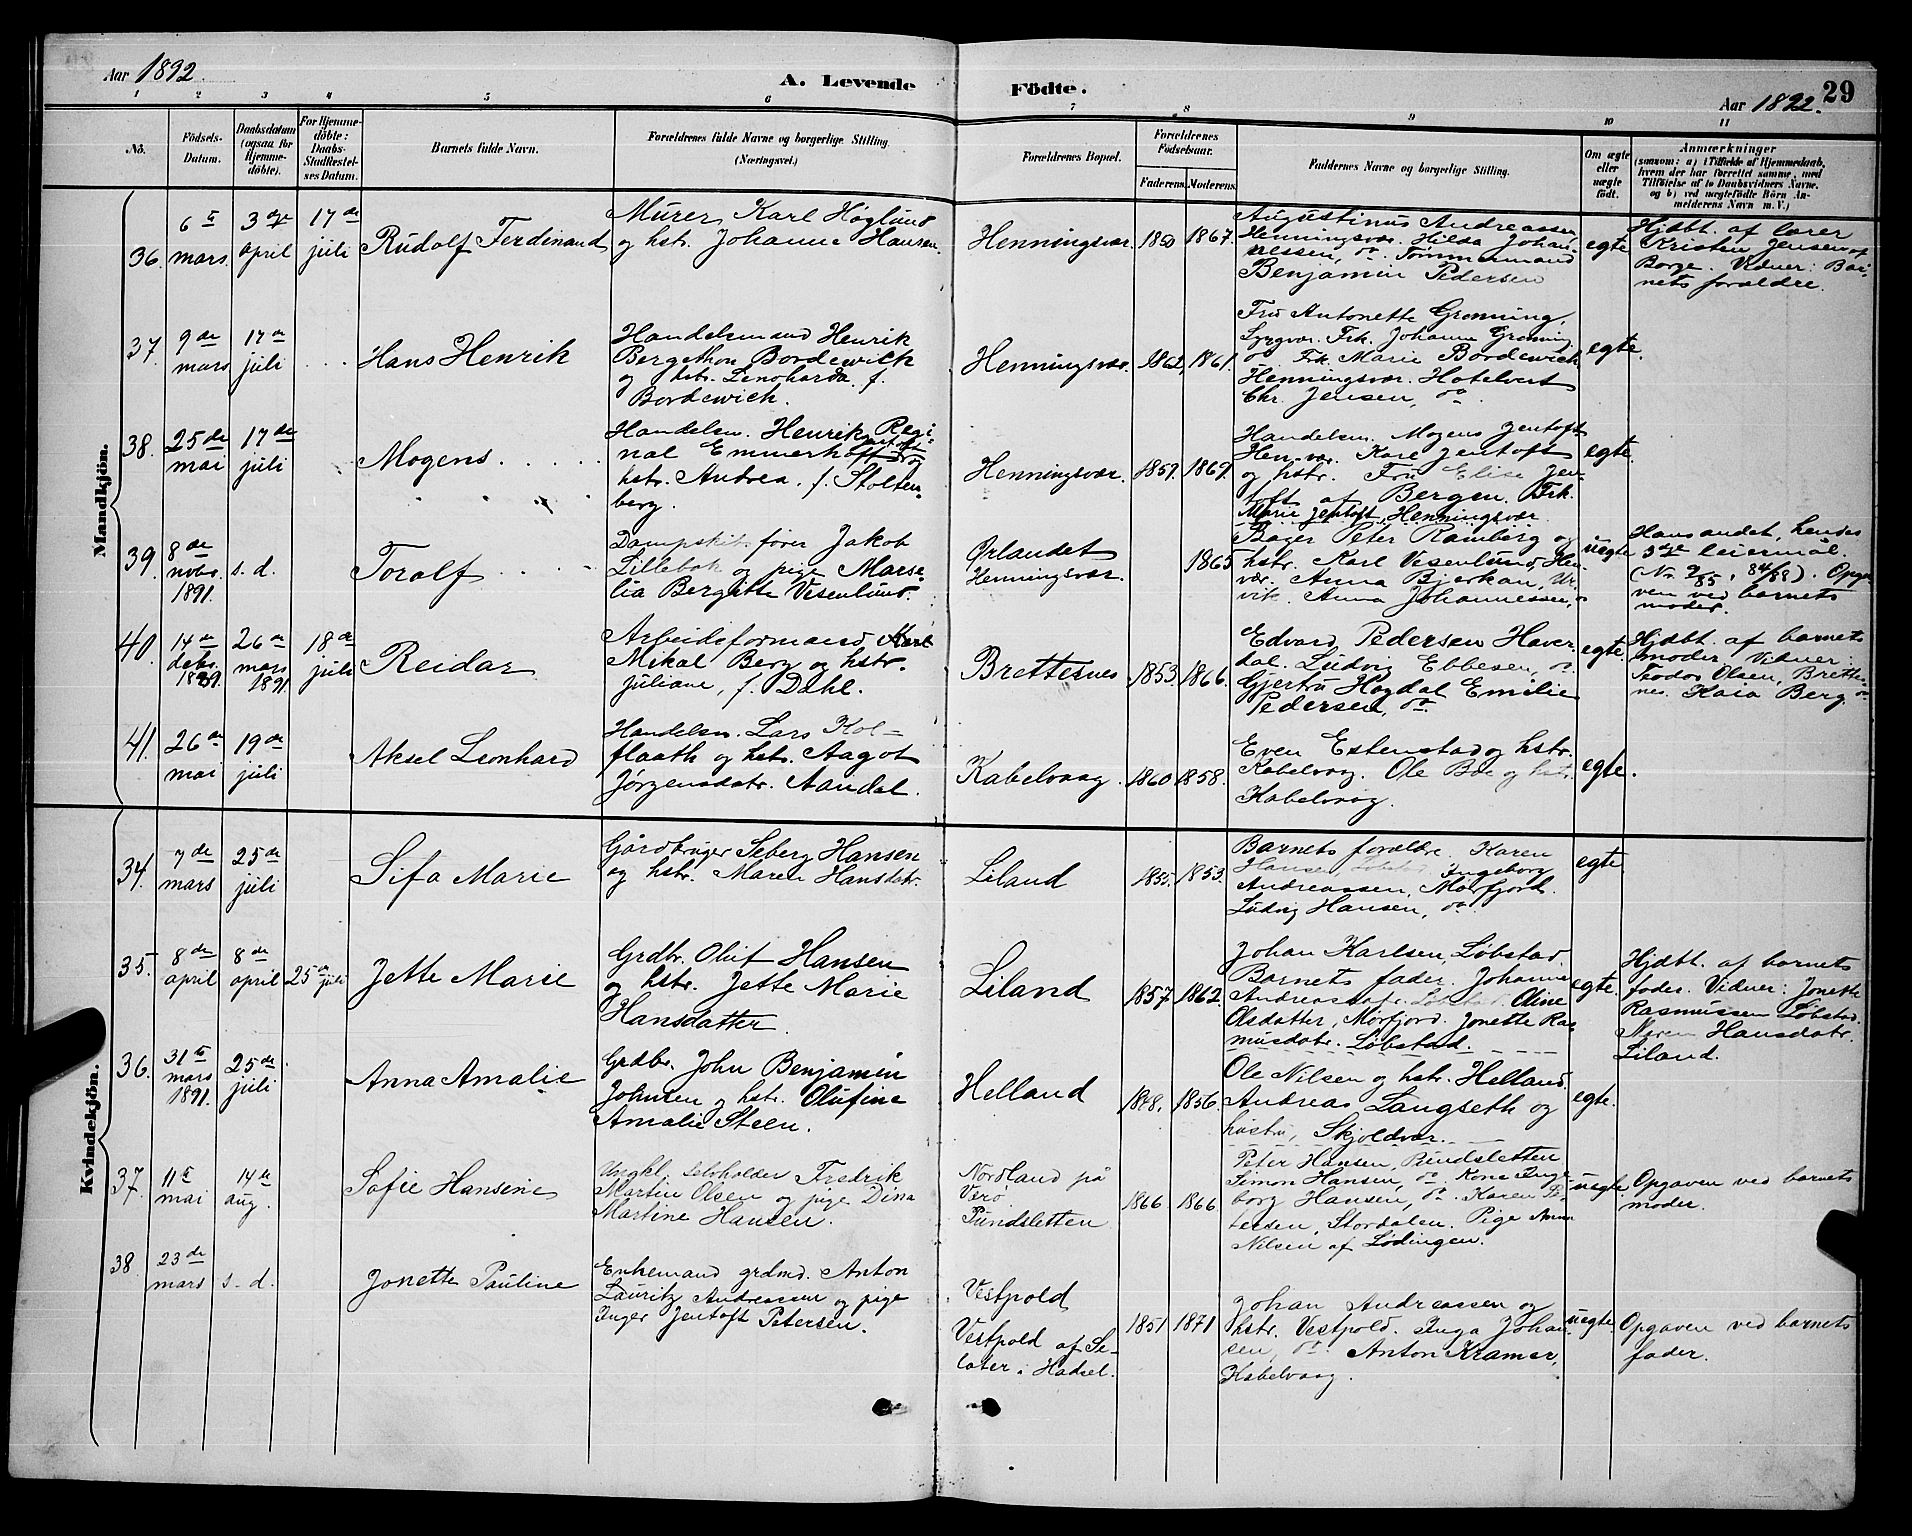 Aar 1892. A. Levende Födte. Aar 1892. 29
1 2 3 4 5 6 7 8 9 10 11
No. Födsels-Datum. Daabsdatum (ogsaa for Hjemme-døbte). For Hjemme-døbte: Daabs-Stadfæstel-ses Datum. Barnets fulde Navn. Forældrenes fulde Navne og borgerlige Stilling (Næringsvei). Forældrenes Bopæl. Forældrenes Födselsaar. Faderens. Moderens. Faddernes Navne og borgerlige Stilling. Om ægte eller uægte født. Anmærkninger (saasom: a) i Tilfælde af Hjemmedaab, hvem der har forrettet samme, med Tilföielse af to Daabsvidners Navne, og b) ved uægtefödte Börn Anmelderens Navn m. V.)
Mandkjön.
36. 6te mars. 3dje april 17de juli Rudolf Ferdinand
Murer Karl Høglund
og hstr. Johanna Hansen.
Henningsvær. 1850 1867.
Augustinus Andreassen
Henningsvær. Hilda Johan-
nessen, do. Tømmermand
Benjamin Pedersen
egte
Hjdbt. af lærer
Kristen Jensen af
Borge. Vidner: Bar-
nets forældre.
37. 9de mars 17de juli ... Hans Henrik
Handelsmand Henrik
Bergethon Bordewick
og hstr. Lenharda f.
Bordewich.
Henningsvær. 1862, 1861.
Fru Antonette Grønning,
Frk. Johanne Grønning
do Frk. Marie Bordewich
Henningsvær. Hotelvert
Chr. Jensen, do.
egte.
38. 25de mai 17de juli Mogens . . . .
Handelsm. Henrik Regi-
nal Emmerhoff og
hstr. Andrea, f. Stolten-
berg.
Henningsvær. 1859. 1869.
Handelsm. Mogens Jentoft
Hen.vær. Karl Jentoft
og hstr. Fru Elise Jen-
toft af Bergen. Frk.
Marie Jentoft, Henningsvær.
egte.
39. 8de nobr. 1891. s. d. Toralf . . . .
Dampskibsfører Jakob
Lillebok og pige Marse-
lia Bergitte Vesenlund.
Ørlandet
Henningsvær. 1865
Bager Peter Ramberg og
hstr. Karl Vesenlund, Hen-
vær. Anna Bjerkan, Ur-
vik. Anna Johannessen, do
uegte
Hans andet, hendes
3dje leiermål.
(Nr. 9/85, 84/88). Opga-
ven ved barnets
moder.
40. 14de debr. 1891. 26de mars 1891. 18de juli Reidar
Arbeidsformand Karl
Mikal Berg og hstr.
Juliane, f. Dahl.
Brettesnes 1853. 1866.
Edvard Pedersen Haver-
dal. Ludvig Ebbesen, do.
Gjertru Hogdal Emilie
Pedersen, do.
egte.
Hjdbt. af barnets
moder. Vidner:
Teodor Olsen, Brettes-
nes. Kaia Berg do.
41. 26de mai 19de juli Aksel Leonhard
Handelsm. Lars Kol-
flaath og hstr. Aagot
Jørgensdatr. Aandal.
Kabelvaag. 1860 1858.
Even Estenstad og hstr.
Kabelvag. Ole Boe og hstr.
Kabelvåg.
egte.
Kvindekjön.
34. 7de mars 25de juli Sifa Marie
Gårdbruger Seberg Hansen
og hstr. Maren Hansdatr.
Liland 1855. 1853.
Barnets forældre. Karen
Hansen Løbstad. Ingeborg
Andreassen, Mørfjord.
Ludvig Hansen, do.
egte
35. 8de april 8de april 25de juli Jette Marie
Grdbr. Oluf Hansen
og hstr. Jette Marie
Hansdatter.
Liland 1857. 1862.
Johan Karlsen, Løbstad.
Barnets fader. Johanna
Løbstad. Oline
Olsdatter, Mørfjord. Jonette Ras-
musdatr. Løbstad.
egte.
Hjdbt. af barnets
fader. Vidner: Jonette
Rasmussen Løbstad.
Maren Hansdatr.
Liland.
36. 31te mars 1891. 25de juli Anna Amalie
Grdbr. John Benjamin
Johnsen og hstr. Olufine
Amalie Steen.
Helland 1848. 1856.
Ole Nilsen og hstr. Helland.
Andreas Langseth og
hustru, Skjoldvær.
egte.
37. 11te mai 14de aug. Sofie Hansine
Ungkl. selvholder Fredrik
Martin Olsen og pige Dina
Martine Hansen.
Nordland på
Værø
Pundsletten 1866 1866.
Peter Hansen, Pundsletten
Simon Hansen, do. Kone Inge-
borg Hansen, do. Karen Pe-
tersen, Stordalen. Pige Anna
Nilsen af Lødingen.
uegte.
Opgaven ved barnets
moder.
38 23de mars s. d. Jonette Pauline
Enkemand grdmd. Anton
Lauritz Andreassen og pige
Inger Jentoft Petersen.
Vestpold
Vestpold af Se-
later i Hadsel. 1851 1871
Johan Andreassen og
hstr. Vestpold. Inga Johan-
sen, do. Anton Kramer,
Kabelvaag.
uegte.
Opgaven ved barnets
fader.